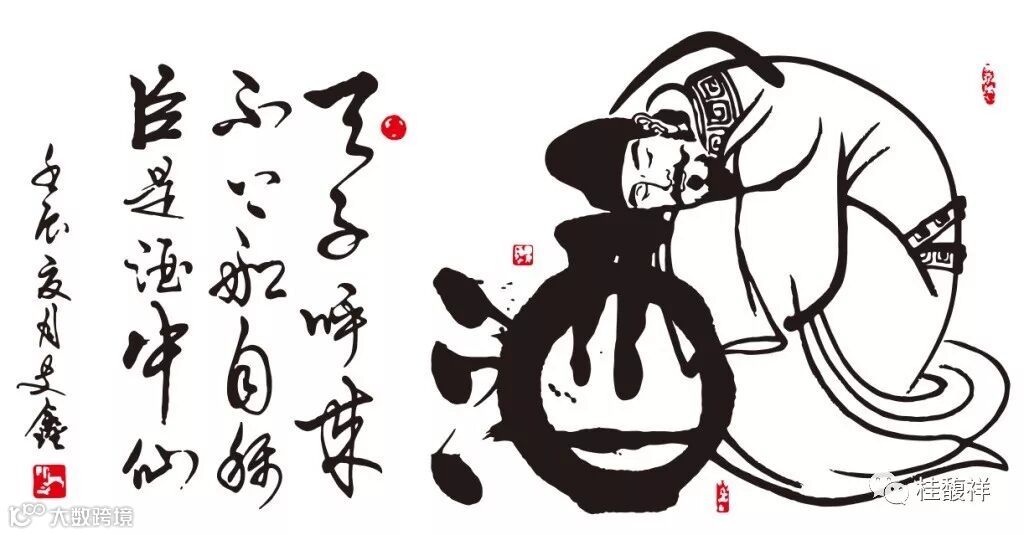 天子呼来
不上船自称
臣是酒中仙
壬辰夏月史鑫
酒
桂馥祥
10100 大数跨境